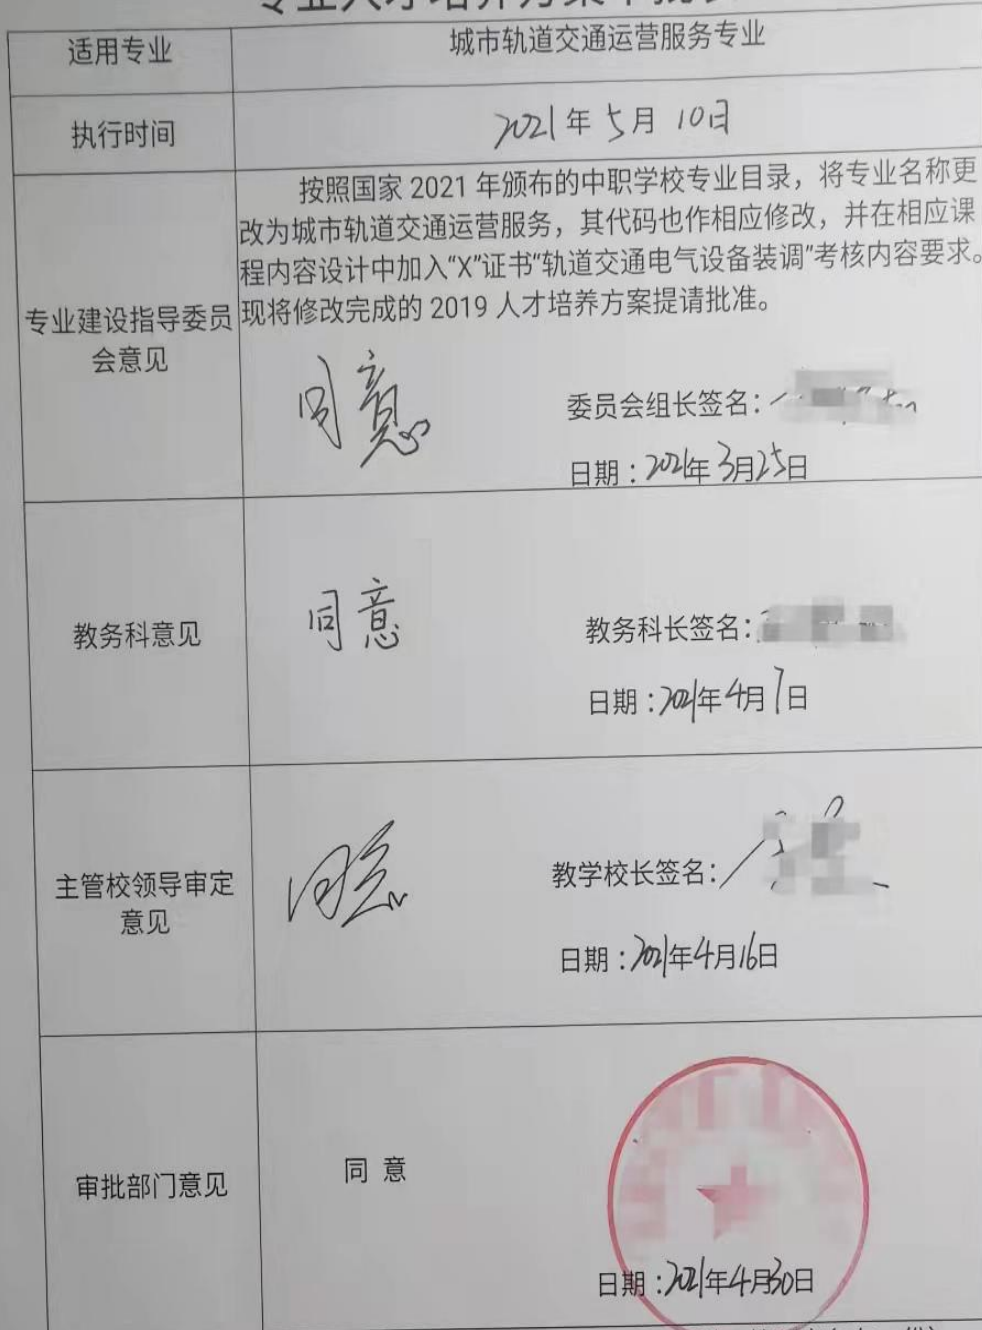 专业人才培养方案审批表
适用专业
城市轨道交通运营服务专业
执行时间
2021年5月10日
按照国家 2021 年颁布的中职学校专业目录，将专业名称更
改为城市轨道交通运营服务，其代码也作相应修改，并在相应课
程内容设计中加入“X”证书“轨道交通电气设备装调”考核内容要求。
现将修改完成的 2019 人才培养方案提请批准。
专业建设指导委员
会意见
同意
委员会组长签名：
日期：2021年3月25日
教务科意见
同意
教务科长签名：
日期：2021年4月7日
主管校领导审定
意见
同意
教学校长签名：
日期：2021年4月16日
审批部门意见
同 意
日期：2021年4月30日